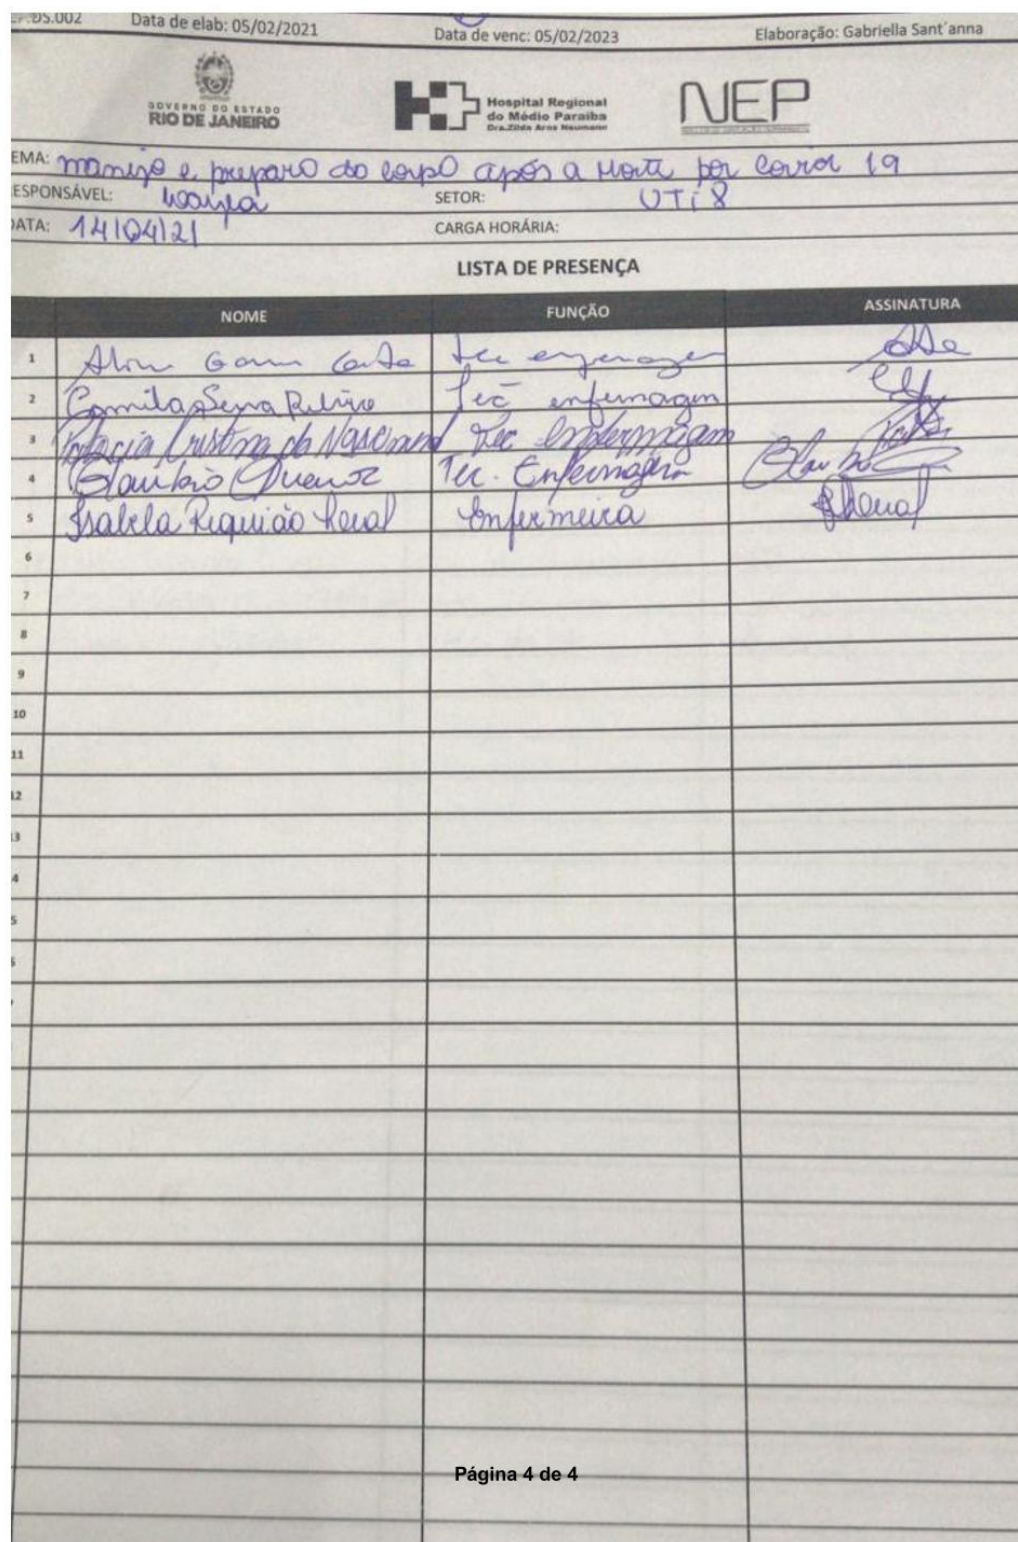 .DS.002 Data de elab: 05/02/2021 Data de venc: 05/02/2023 Elaboração: Gabriella Sant´anna
GOVERNO DO ESTADO
RIO DE JANEIRO
Hospital Regional
do Médio Paraíba
Dra.Zilda Arns Neumann
NEP
EMA: manejo e preparo do corpo após a morte por covid 19
ESPONSÁVEL: SETOR: UTI 8
DATA: 14/04/21 CARGA HORÁRIA:
LISTA DE PRESENÇA
NOME FUNÇÃO ASSINATURA
1 Tec enfermagem
2 Camila Ribeiro Tec enfermagem
3 Cristina do Nasciment Tec Enfermagem
4 Tec. Enfermagem
5 Isabela Riquião Enfermeira
6
7
8
9
10
11
12
13
4
5
Página 4 de 4